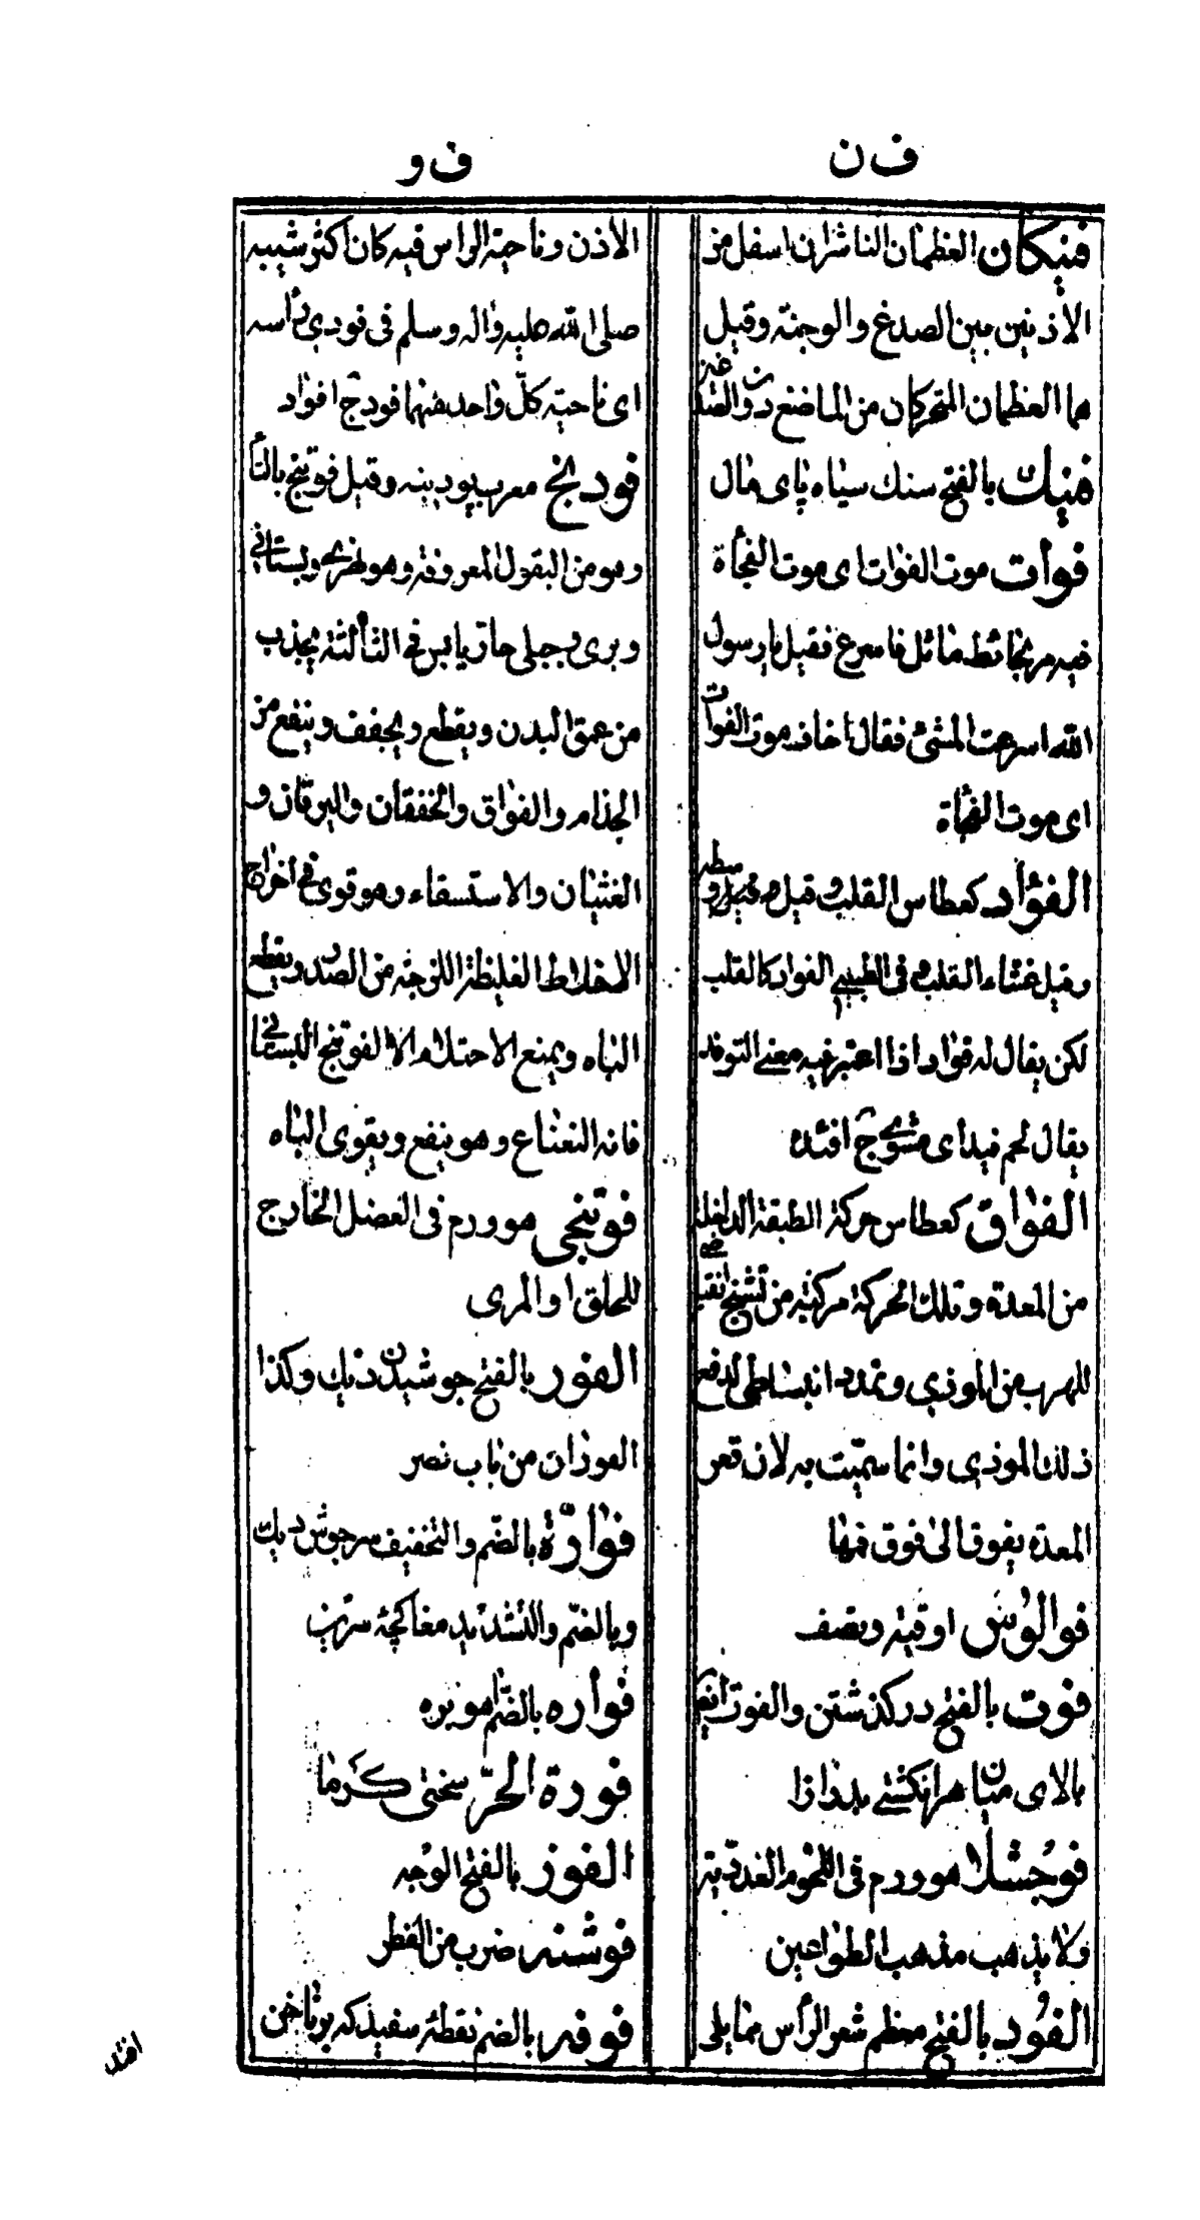 ف ن
فنيكان العظمان الناشزان اسفل من
الاذنين بين الصدغ والوجنة وقيل
هما العظمان المتحركان من الماضغ دون الصدغين
فنيك بالفتح سنك سياه پاى مال
فوات موت الفوات اى موت الفجأة
فيه مر بحائط مائل فاسرع فقيل يا رسول
الله اسرعت المشى فقال اخاف موت الفوات
اى موت الفجأة
الفؤاد كعطاس القلب و قيل وسطه
وقيل غشاء القلب و فى الطيبى الفواد كالقلب
لكن يقال له فواد اذا اعتبر فيه معنى التوقد
يقال لحم فيد اى مشوى ج افئده
الفواق كعطاس حركة الطبقة الداخلة
من المعدة وتلك الحركة مركبة من تشنج انقباضى
للهرب من الموذى وتمدد انبساطى لدفع
ذلك الموذى وانما سميت به لان قعر
المعدة يفوق الى فوق فمها
فوالوس اوقية ونصف
فوت بالفتح در كذشتن والفوت آنچه
بالاى ميان هر انكشتى بدرازا
فوجثلا هو ورم فى اللحوم الغددية
ولا يذهب مذهب الطواعين
الفود بالفتح معظم شعر الرأس مما يلى
ف و
الاذن وناحية الراس فيه كان اكثر شيبه
صلى الله عليه واله وسلم فى فودى راسه
اى ناحيته كل واحد منهما فود ج افواد
فودنج معرب پودينه وقيل فوتنج بالتا
وهو من البقول المعروفة وهو نهرى وبستانى
وبرى وجبلى حار يابس فى الثالثة يجذب
من عمق البدن ويقطع ويجفف وينفع من
الجذام والفواق والخفقان واليرقان و
الغثيان والاستسقاء وهو قوى فى اخراج
الاخلاط الغليظة اللزجة من الصدر ويقطع
الباه ويمنع الاحتلام الا الفوتنج البستانى
فانه النعناع وهو ينفع ويقوى الباه
فوتنجى هو ورم فى العضل الخارج
للحلق او المرى
الفور بالفتح جوشيدن ديك وكذا
الفوران من باب نصر
فوارة بالضم والتخفيف سرجوش ديك
وبالضم والتشديد مغاكچه سرين
فواره بالضم موبره
فورة الحر سختى كرما
الفوز بالفتح الوجه
فوشنه ضرب من الفطر
فوفه بالضم نقطه سفيد كه بر ناخن
افتد